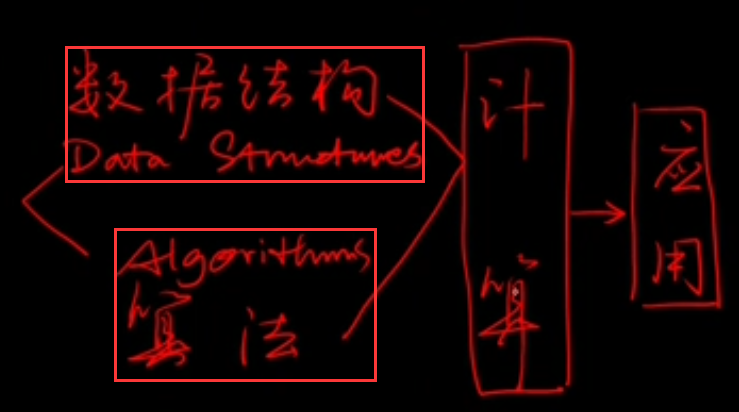 数据结构
Data Structures
Algorithms
算法
计算
应用